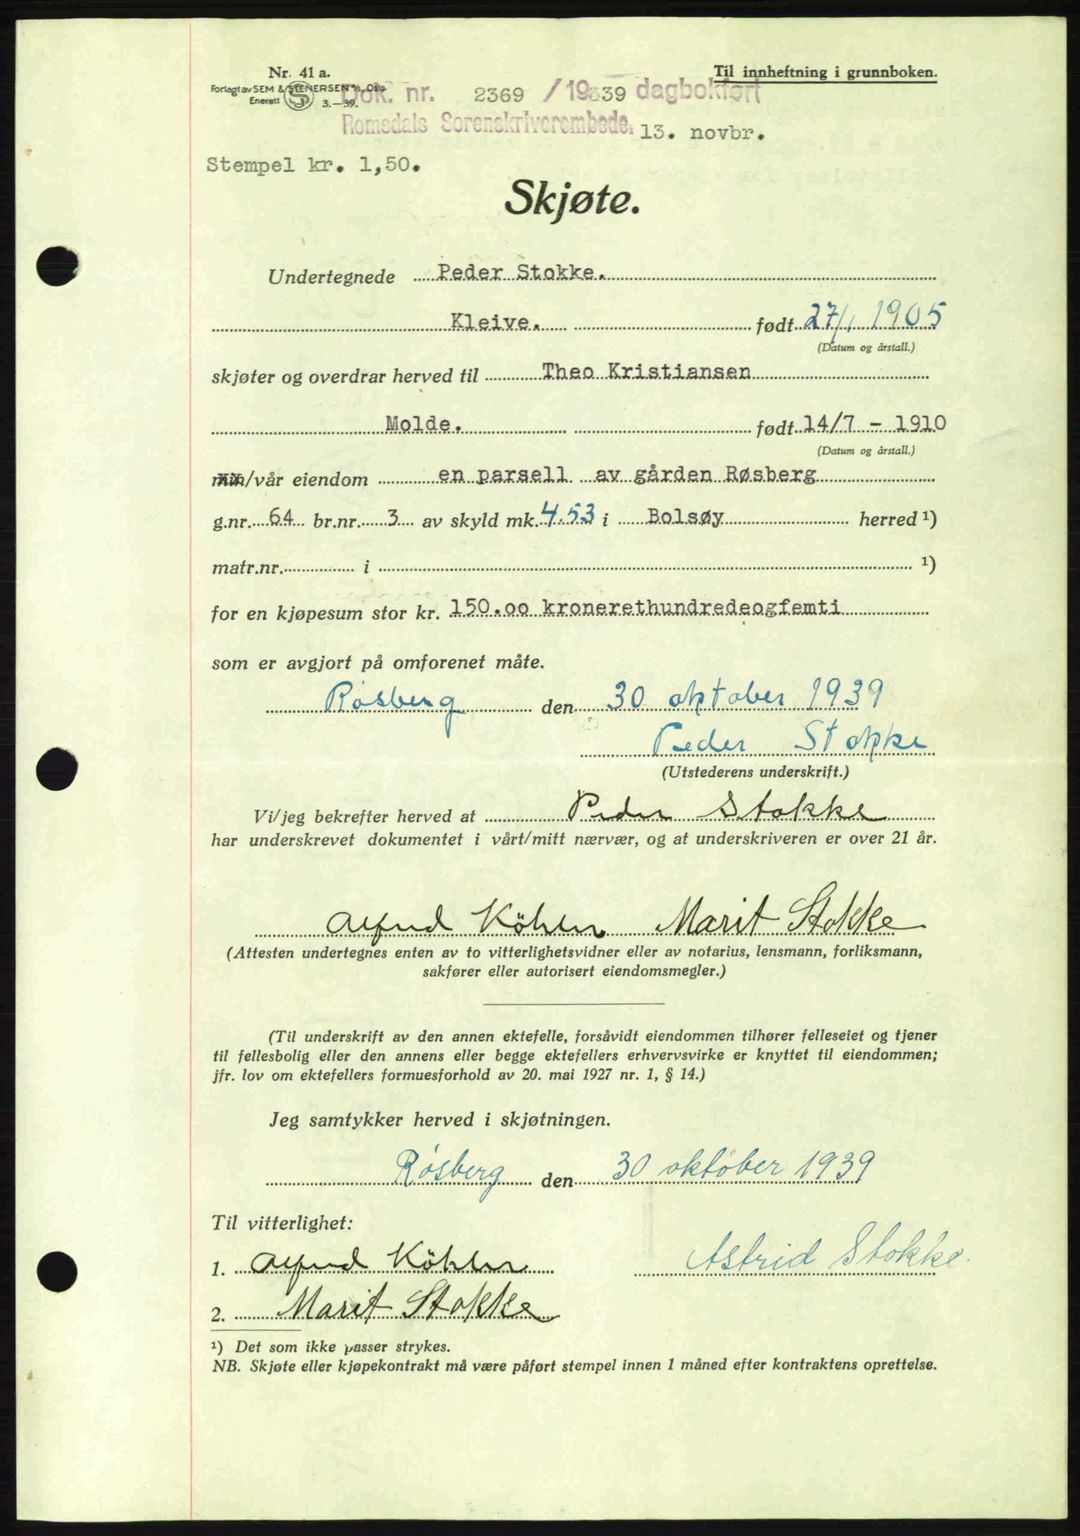 Nr. 41 a.
Til innheftning i grunnboken.
Forlagt av SEM & STENERSEN A/S, Oslo
Enerett 3.—39.
Dok. nr. 2369 / 1939 dagbokført
Romsdals Sorenskriverembede, 13. novbr.
Stempel kr. 1,50.
Skjøte.
Undertegnede Peder Stokke.
Kleive. født 27/1 1905
(Datum og årstall.)
skjøter og overdrar herved til Theo Kristiansen
Molde. født 14/7 - 1910
(Datum og årstall.)
/vår eiendom en parsell av gården Røsberg
g.nr. 64 br.nr. 3 av skyld mk. 4.53 i Bolsøy herred ¹)
matr.nr. i ¹)
for en kjøpesum stor kr. 150.oo kronerethundredeogfemti
som er avgjort på omforenet måte.
Røsberg den 30 oktober 1939
Peder Stokke
(Utstederens underskrift.)
Vi/jeg bekrefter herved at Peder Stokke
har underskrevet dokumentet i vårt/mitt nærvær, og at underskriveren er over 21 år.
Alfred Köhler Marit Stokke
(Attesten undertegnes enten av to vitterlighetsvidner eller av notarius, lensmann, forliksmann,
sakfører eller autorisert eiendomsmegler.)
(Til underskrift av den annen ektefelle, forsåvidt eiendommen tilhører felleseiet og tjener
til fellesbolig eller den annens eller begge ektefellers erhvervsvirke er knyttet til eiendommen;
jfr. lov om ektefellers formuesforhold av 20. mai 1927 nr. 1, § 14.)
Jeg samtykker herved i skjøtningen.
Røsberg den 30 oktober 1939
Til vitterlighet:
1. Alfred Köhler
Astrid Stokke.
2. Marit Stokke
¹) Det som ikke passer strykes.
NB. Skjøte eller kjøpekontrakt må være påført stempel innen 1 måned efter kontraktens oprettelse.